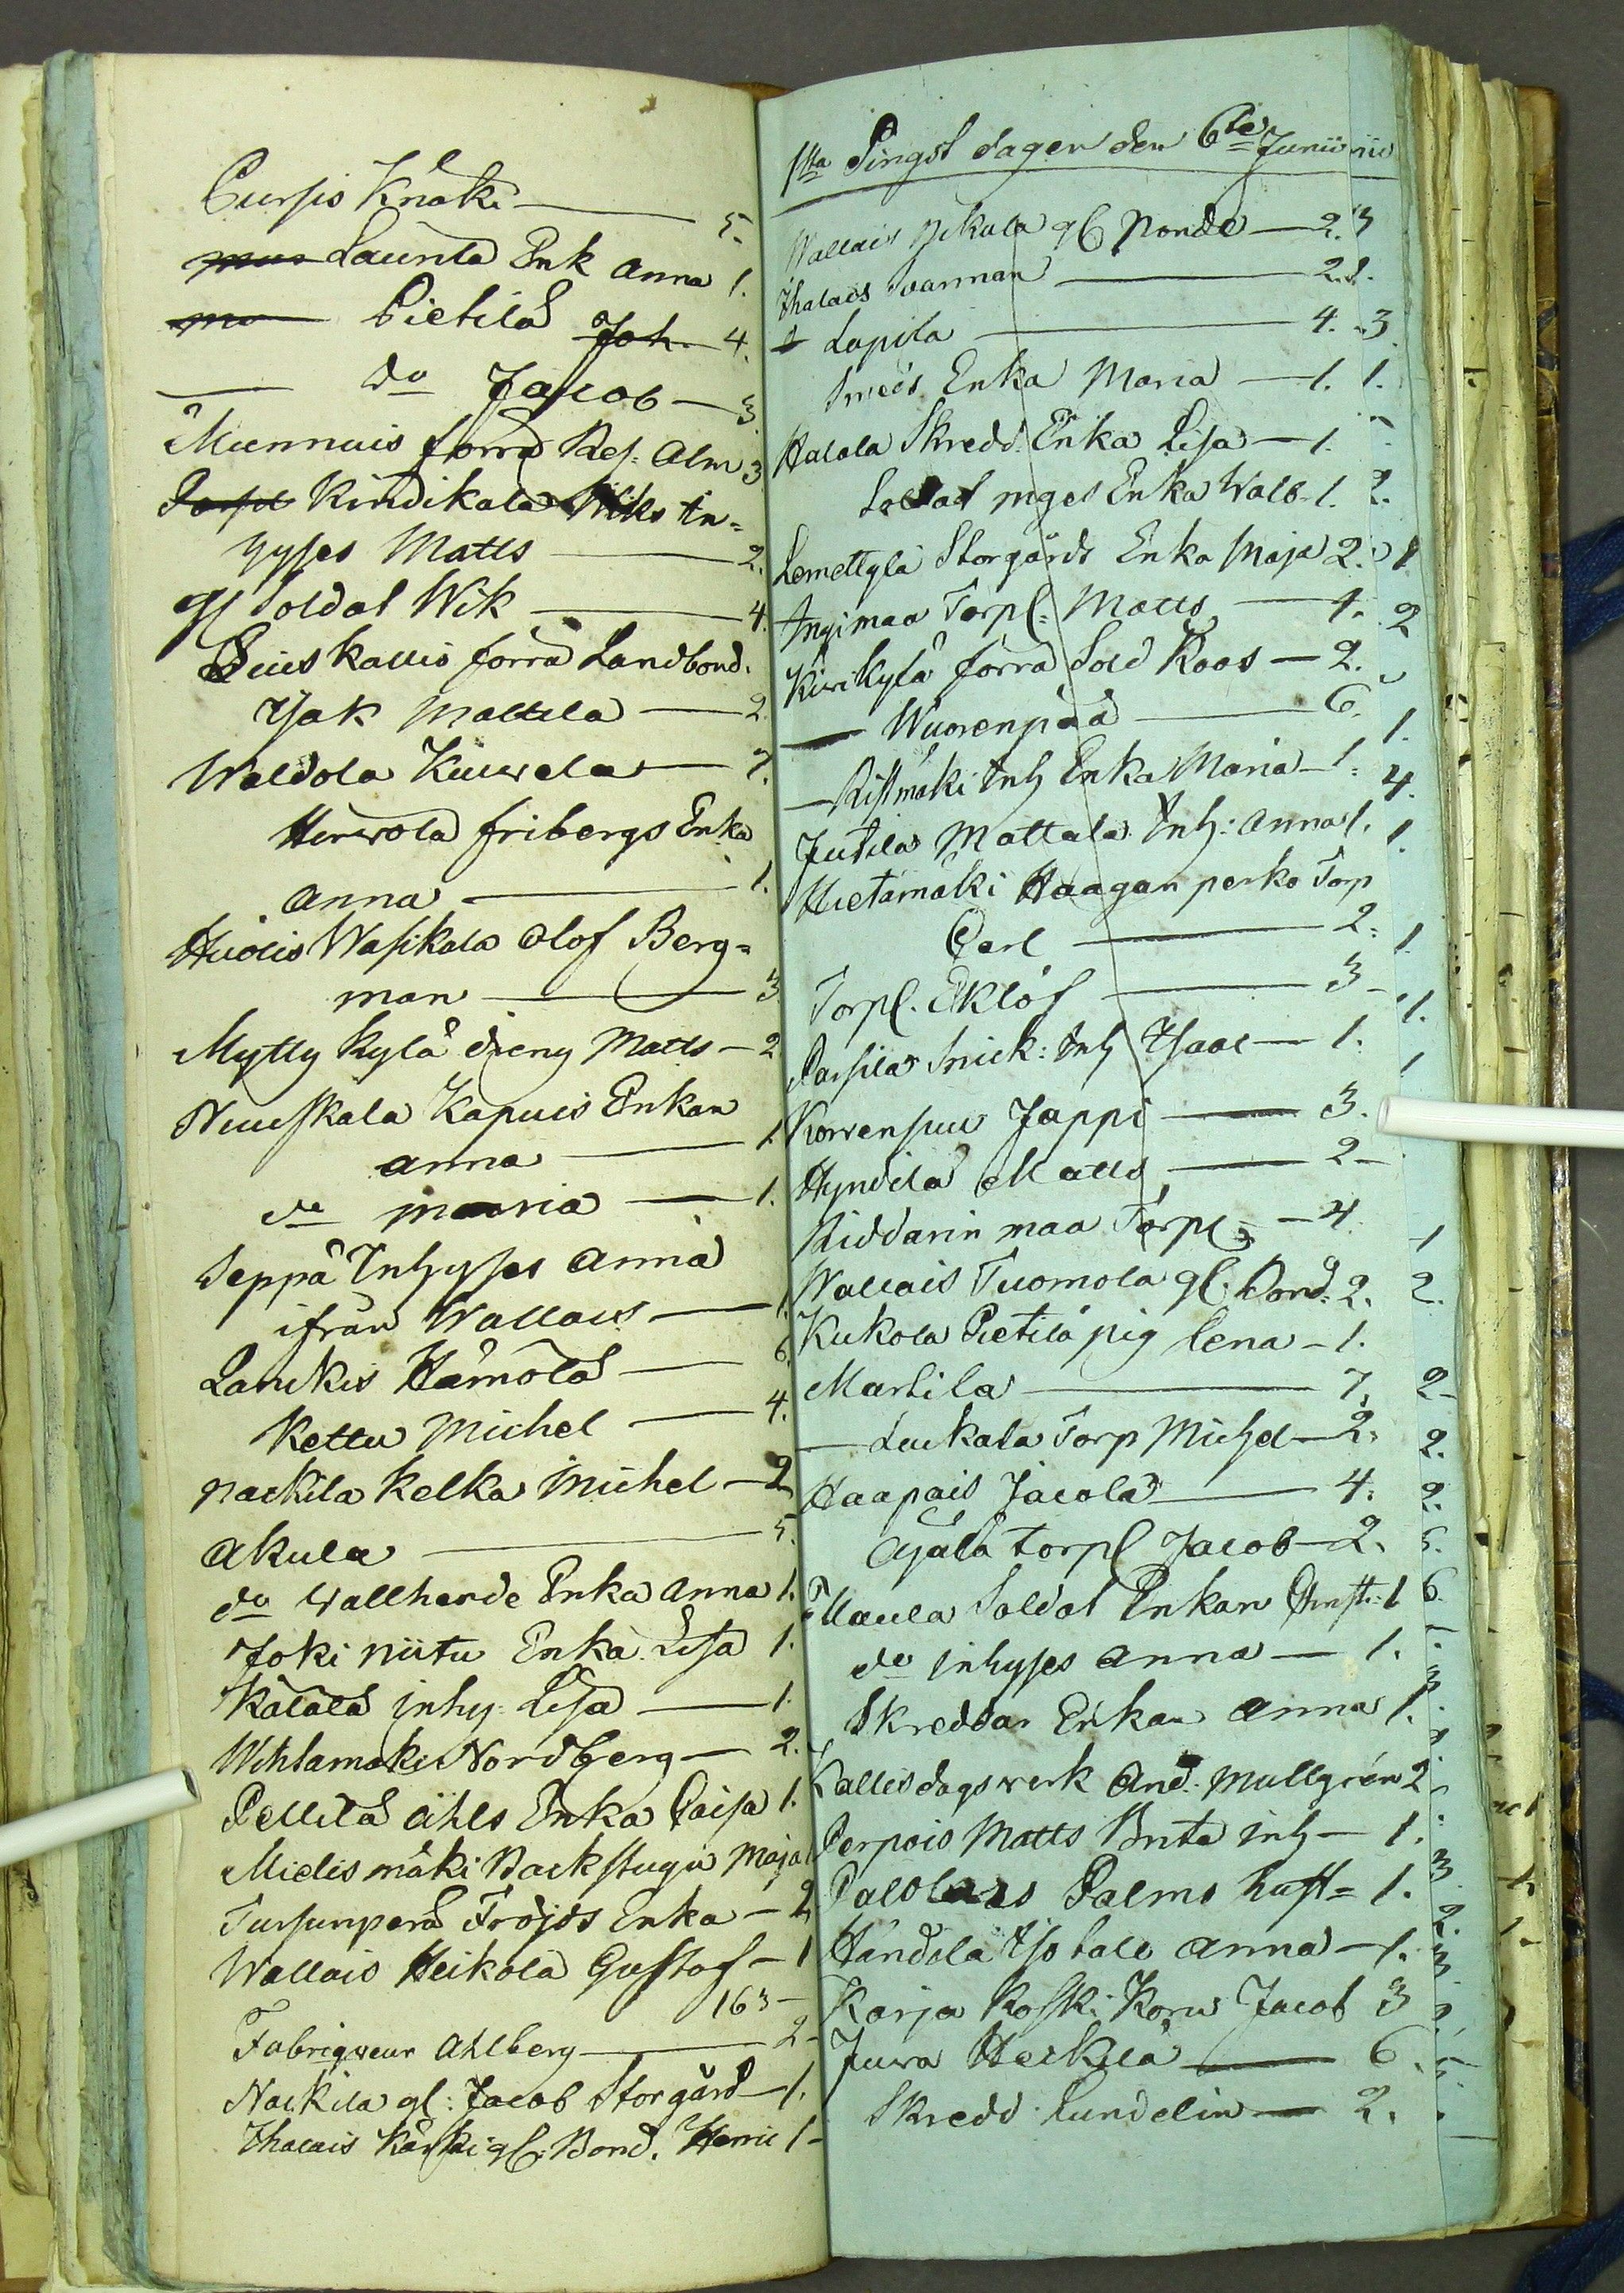 Cursis Knaki — 5.
Launla Enk Anna 1.
Pietilä Joh. 4.
— do Jacob — 3
Munnuis förra Res: Alm 3
Kindikala Wiks in=
hyses Matts — 2.
gl Soldat Wik — 4.
kallio förra Landbond.
Isak Mattila — 2
Waldola Kiuwela — 7.
Herwola fribergs Enka
Anna — 1.
Huois Wasikala Olof Berg=
man — 3
Mytty kylä dreng Matts — 2
Kapuis Enkan
anna — 1.
do maria — 1.
Seppä Inhyses Anna
ifrån Wallais — 1.
Lauckis Hämölä — 6.
Kettu Michel — 4.
Nackila Kelka Michel — 2
Akula — 5.
do Wallherde Enka Anna 1.
Joki niitu Enka Lisa 1.
Kälälä inhy: Lisa — 1.
Wihlamäki Nordberg — 2.
Pellilä Ahls Enka Caisa 1.
Mielismäki Backstugu Maja 1
Tursunperä Fröjds Enka — 2
Wallais Heikola Gustaf — 1
163 —
Fabriqueur Ahlberg — 2 —
Nackila gl: Jacob Storgård — 1.
Ihalais Kärki gl: Bond. Henric 1 —
1sta Pingst dagen den 6te Junii
Wallais Pekula gl Bonde — 2.
Ihalais Svanman — 2.
Lapila — 4.
Smeds Enka Maria — 1.
Halola Skredd. Enka Lisa — 1.
Soldat Enka Walb. 1.
Lemettylä Storgårds Enka Maja 2.
Ingimaa Torpl: Matts — 1.
Kiwikylä förra Sold Roos — 2.
— Wuorenpää — 6.
— Ristmäki Inh Enka Maria — 1.
Jutila Mattala Inh: Anna 1.
Hietamäki Haagan perko Torp
Carl — 2.
Torpl. Eklöf — 3 —
Passila Snick: Inh Isaac — 1.
Korvensuu Jappi — 3.
Hyndilä Matts — 2 —
Riddarin maa Torpl: — 4.
Wallais Tuomola gl. Bond. 2.
Kukola Pietilä pig Lena — 1.
Martila — 7.
— Luckala Torp Michel — 2.
Haapais Jacola — 4.
Ajala torpl Jacob — 2.
Maula Soldat Enkan Christ: 1
do inhyses Anna — 1.
Skreddar Enkan Anna 1.
Kallis dagswerk And: Mullgrén 2
Perpois Matts Brita inh — 1.
Palolais Palms hust= 1.
Händilä Iso talo Anna — 1.
Karja Koski Korw Jacob 3
Juwa Heikilä — 6.
Skredd: Lundelin — 2.